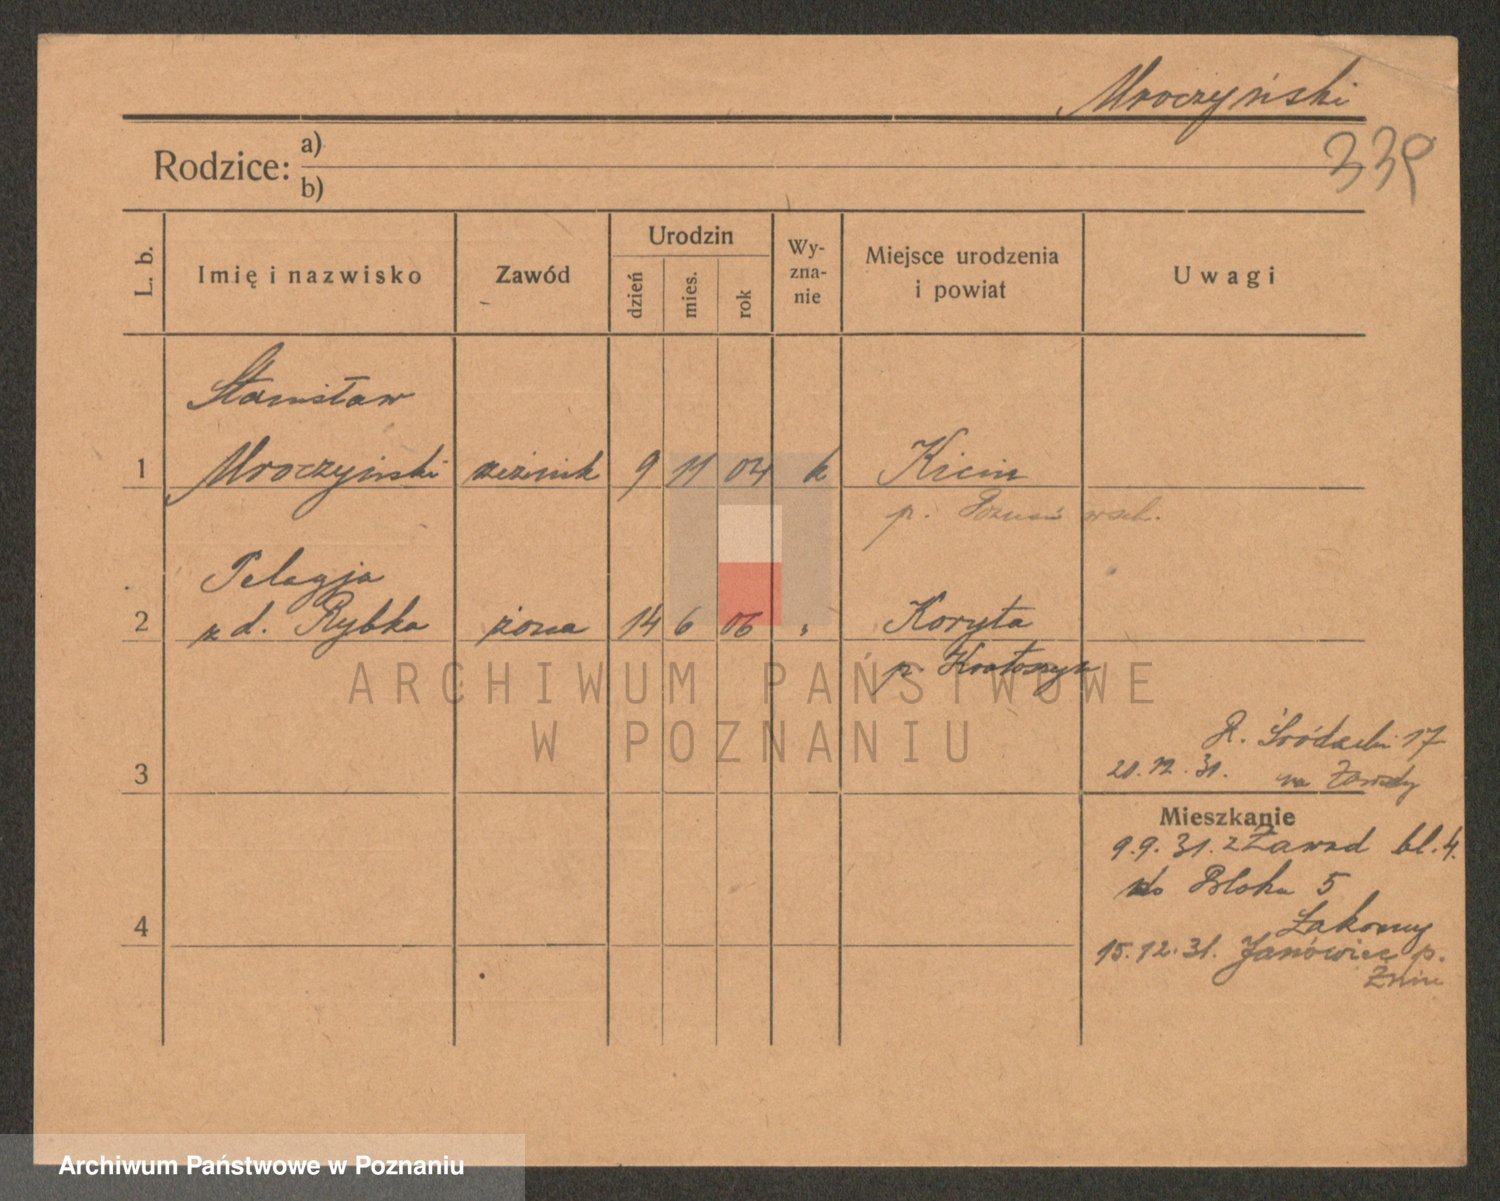 Mroczyński
339
Rodzice: a)
b)
L. b. Imię i nazwisko Zawód Urodzin dzień mies. rok Wy-zna-nie Miejsce urodzenia i powiat Uwagi
Stanisław
1 Mroczyński rzeźnik 9 11 04 k Kicin
p. Poznań wsch.
Pelagja
2 z d. Rybka żona 14 6 06 " Koryta
p. Krotoszyn
ARCHIWUM PAŃSTWOWE
W POZNANIU
R. Śródecki 17
3 20.12.31. na Zawady
Mieszkanie
9.9.31. z Zawad bl. 4.
do Bloku 5
4
15.12.31. Janówiec p.
Żnin
Archiwum Państwowe w Poznaniu